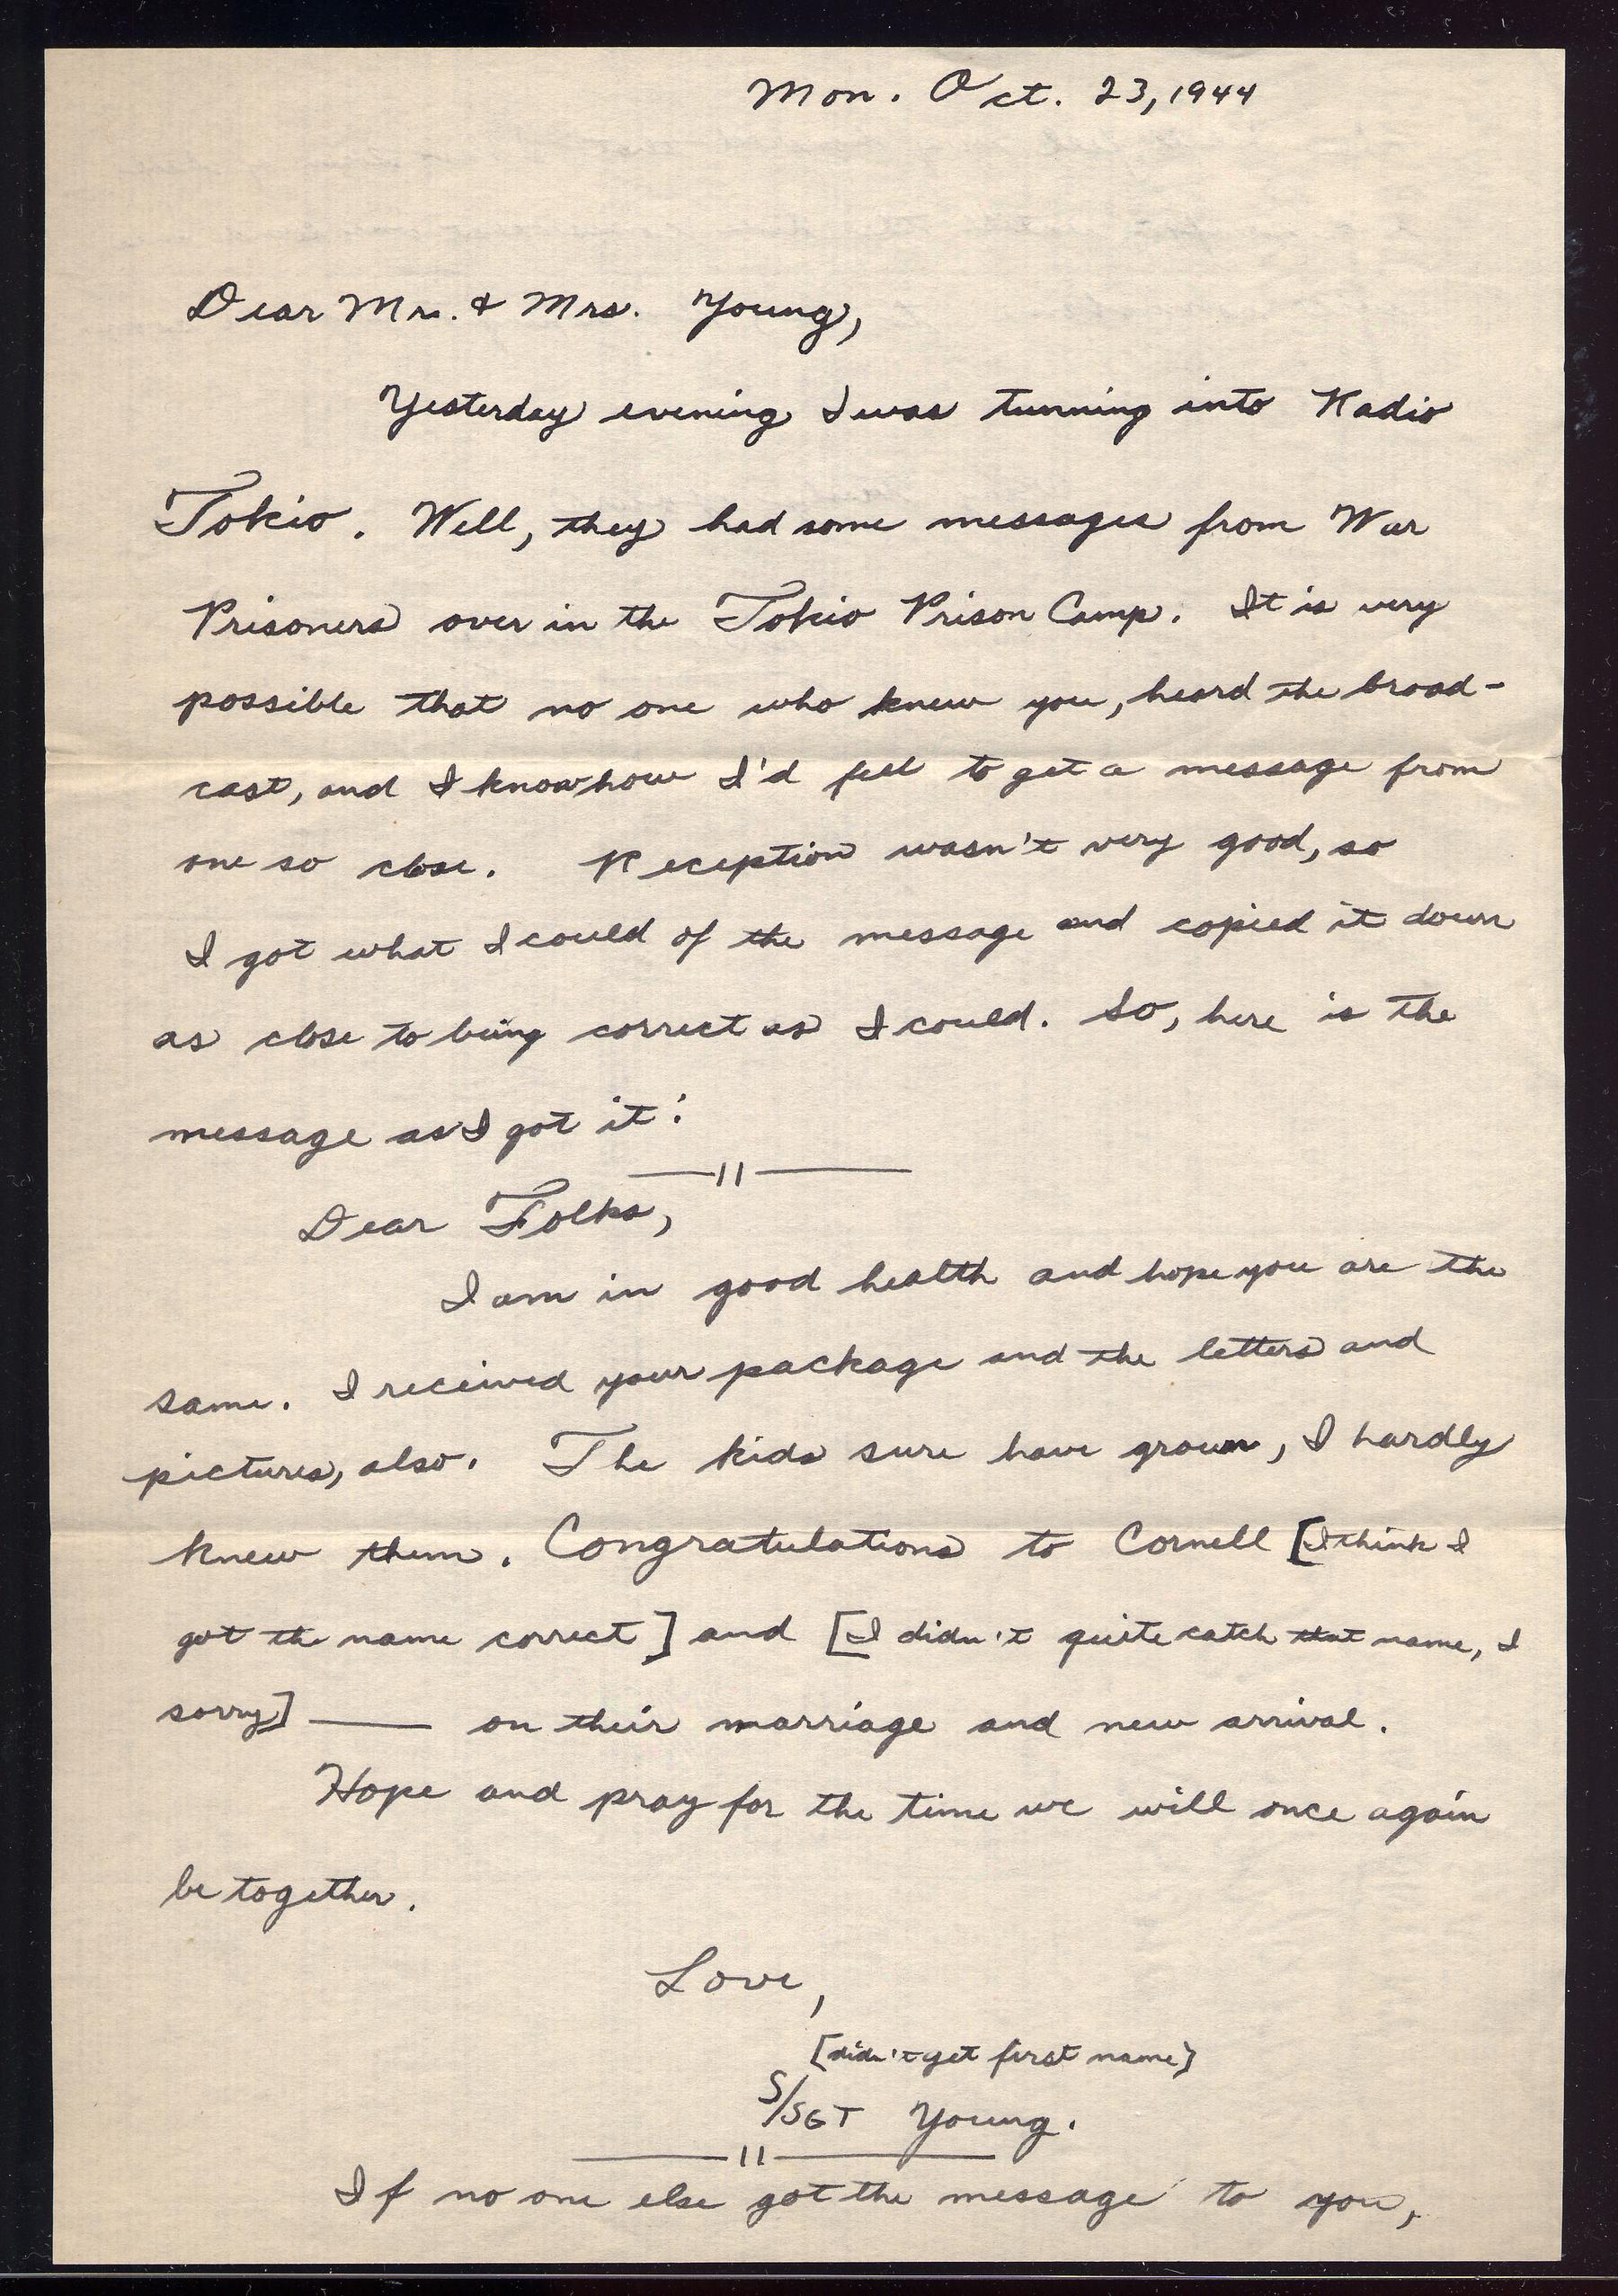 Mon. Oct. 23, 1944
Dear Mr. & Mrs. Young,
Yesterday evening I was tunning into Radio
Tokio. Well, they had some messages from War
Prisoners over in the Tokio Prison Camp. It is very
possible that no one who knew you, heard the broad-
cast, and I know how I'd feel to get a message from
one so close. Reception wasn't very good, so
I got what I could of the message and copied it down
as close to being correct as I could. So, here is the
message as I got it:
Dear Folks,
I am in good health and hope you are the
same. I received your package and the letters and
pictures, also. The kids sure have grown, I hardly
knew them. Congratulations to Cornell [I think I
got the name correct] and [I didn't quite catch that name, I
sorry] —— on their marriage and new arrival.
Hope and pray for the time we will once again
be together.
Love,
[didn't get first name]
S/SGT Young.
If no one else got the message to you,